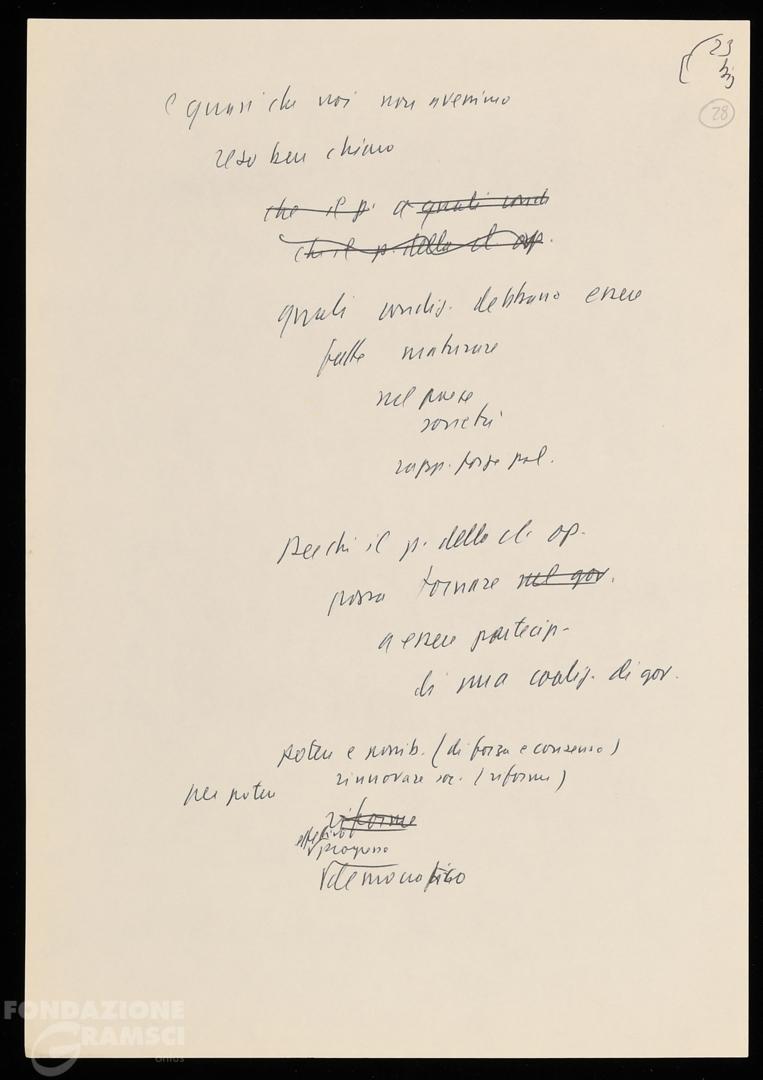 23
bis
28
e quasi che noi non avessimo
reso ben chiaro
che il p. a quali cond
che il p. della cl. op.
quali condiz. debbano essere
fatte maturare
nel paese
società
rapp. forze pol.
Perché il p. della cl. op.
possa tornare nel gov.
a essere partecip.
di una coaliz. di gov.
potere e possib. (di forza e consenso)
per poter rinnovare soc. (riforme)
riforme
progresso
democratico
FONDAZIONE
GRAMSCI
onlus